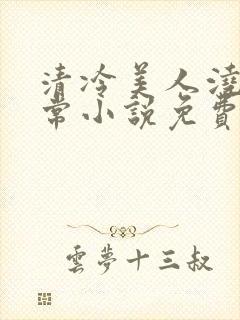 清冷美人澆
常小說免費
雲夢十三叔